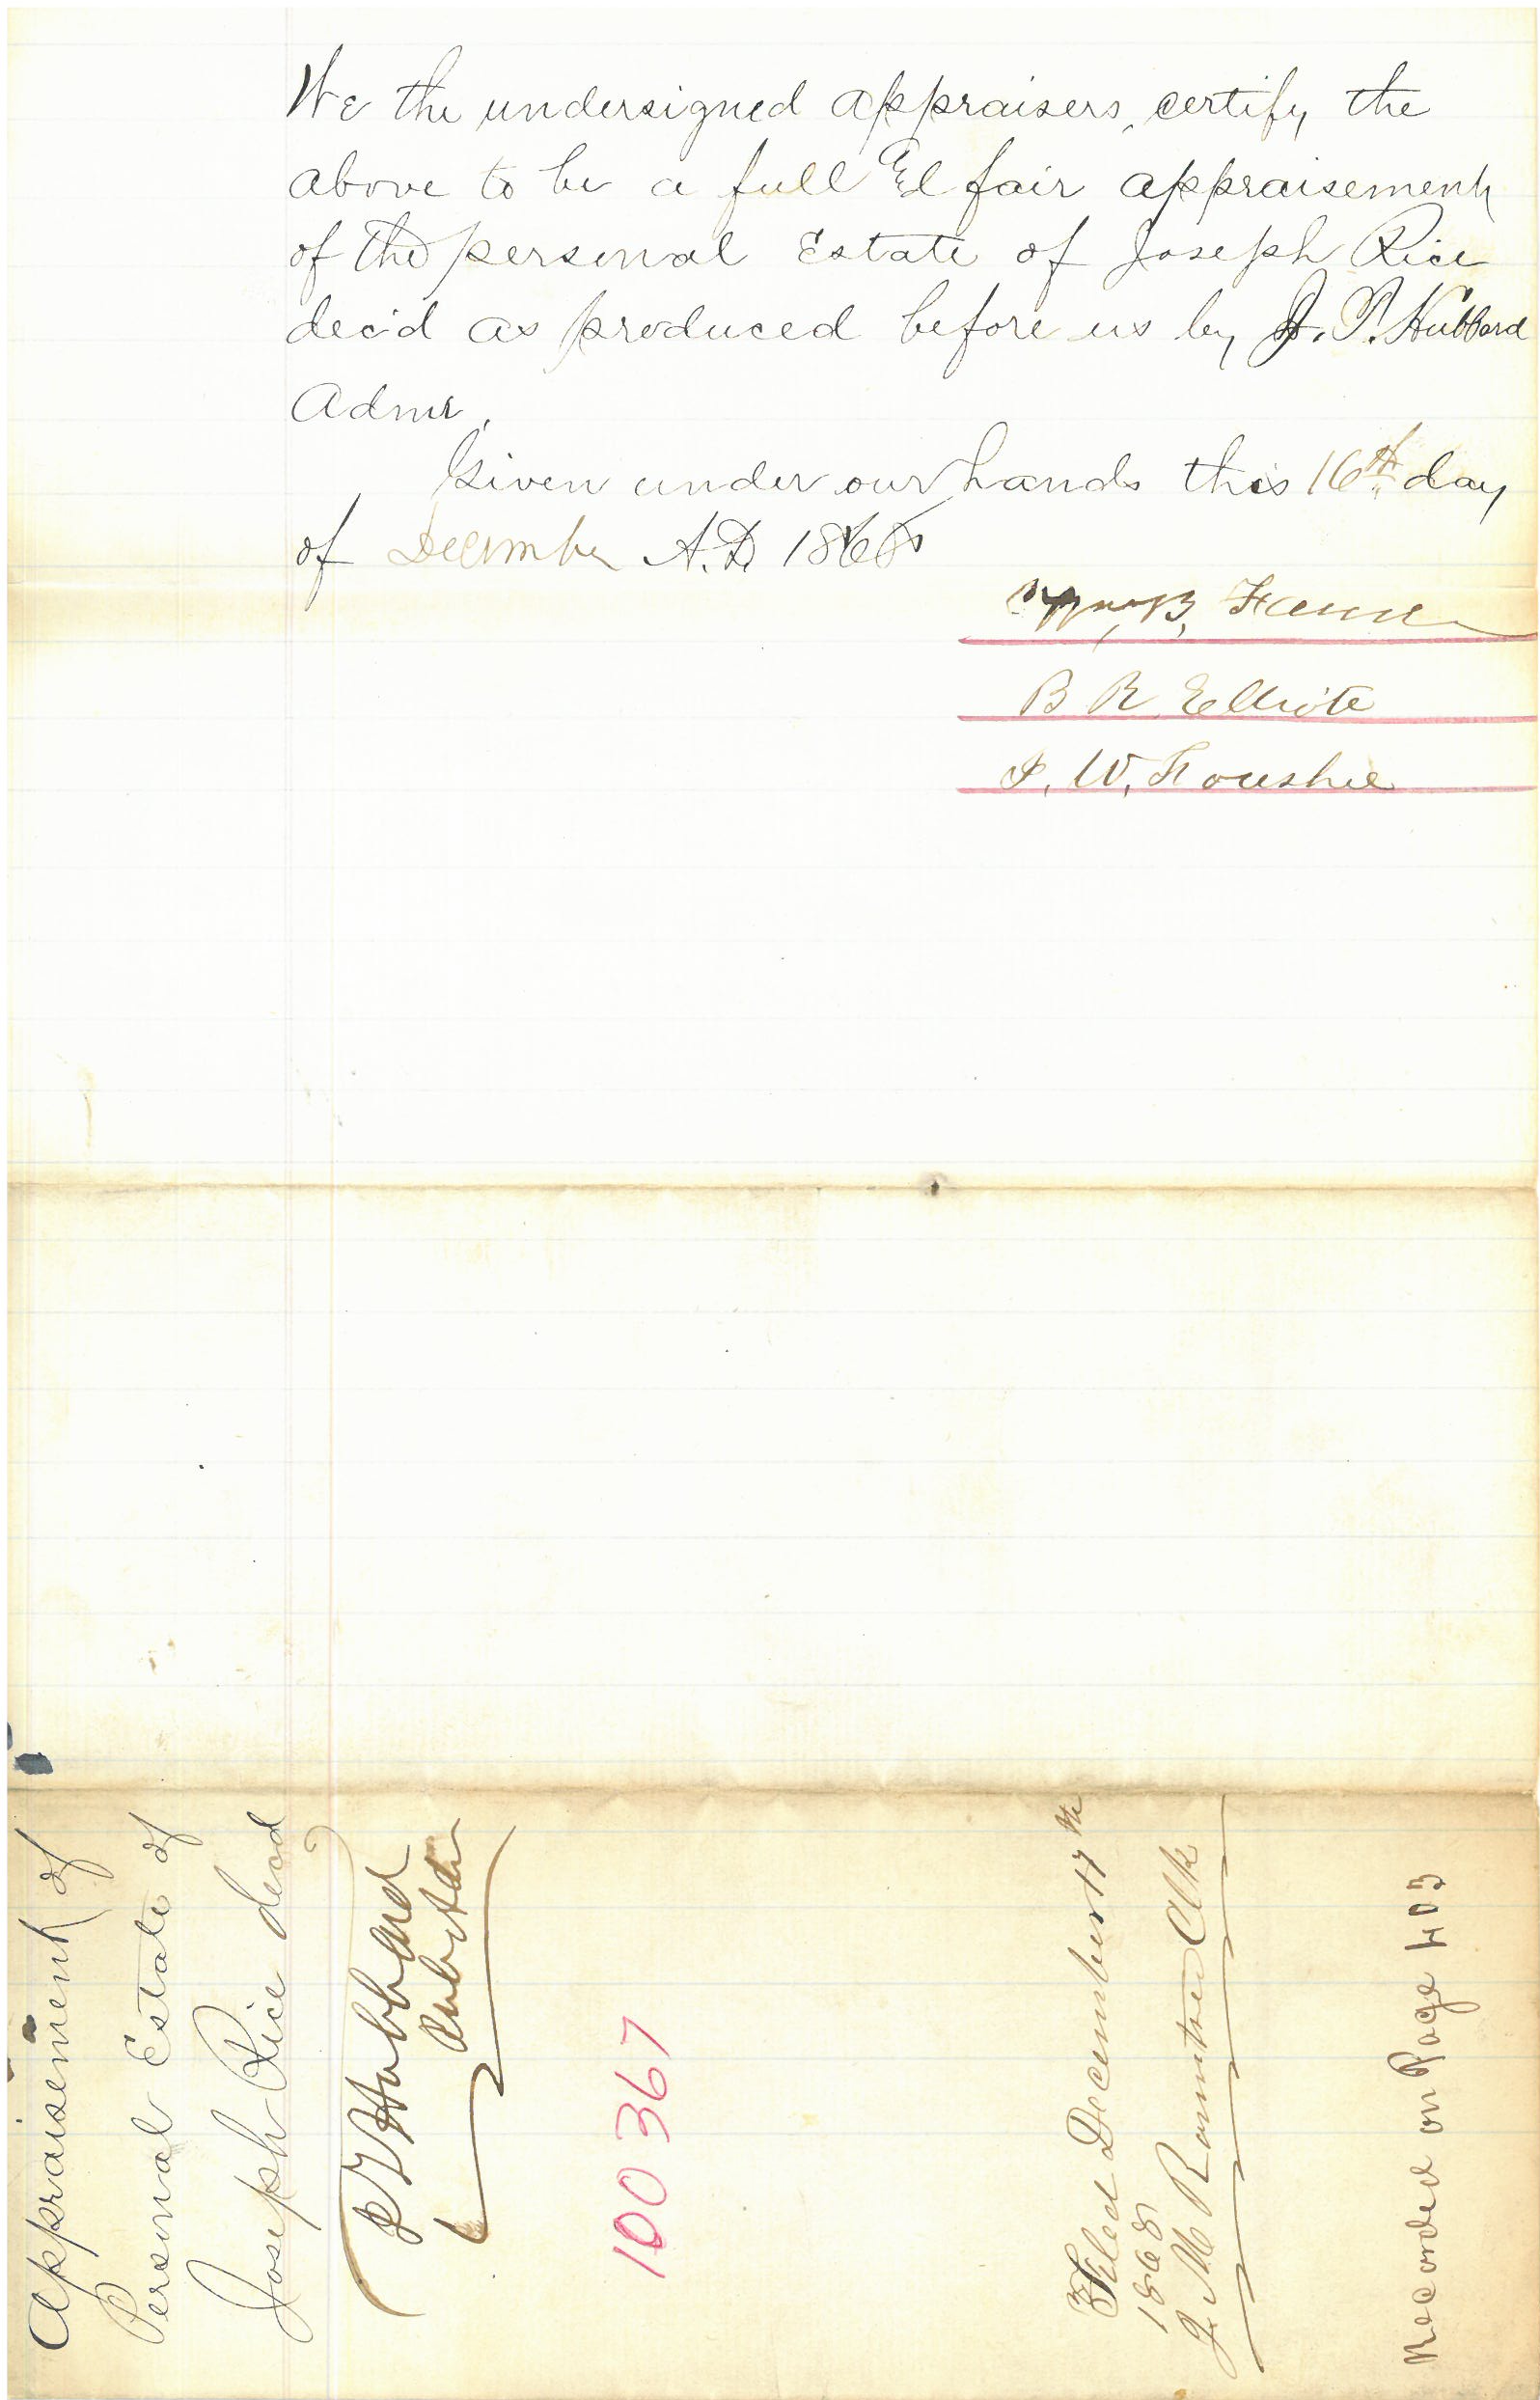 We the undersigned appraisers, certify the
above to be a full and fair appraisement
of the personal Estate of Joseph Rice
dec'd as produced before us by J. T. Hubbard
Admr.
Given under our hands this 16th day
of December A.D. 1868
B.
B R. Elliote
J. W. Foushee
Appraisement of
Personal Estate of
Joseph Rice decd
J T Hubbard
100367
Filed December 17th
1868
J. M Romtree Clk
Recorded on Page 403